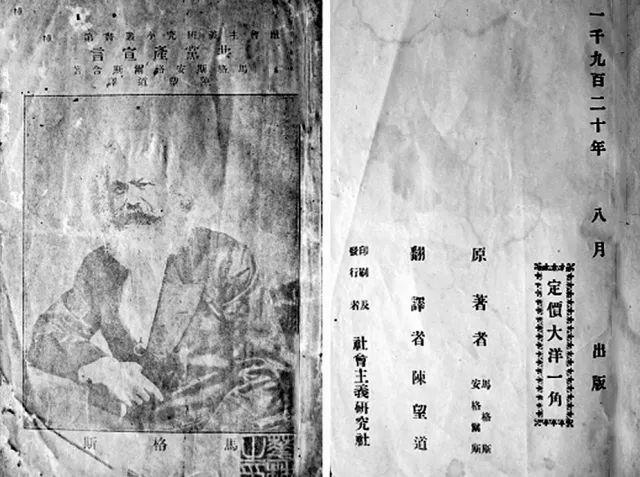 社會主義研究小叢書第
共黨產宣言
馬格斯安格爾斯合著
陳望道譯
馬格斯
一千九百二十年 八月 出版
定價大洋一角
原著者 馬格斯
安格爾斯
翻譯者陳望道
印刷及
發行者 社會主義研究社